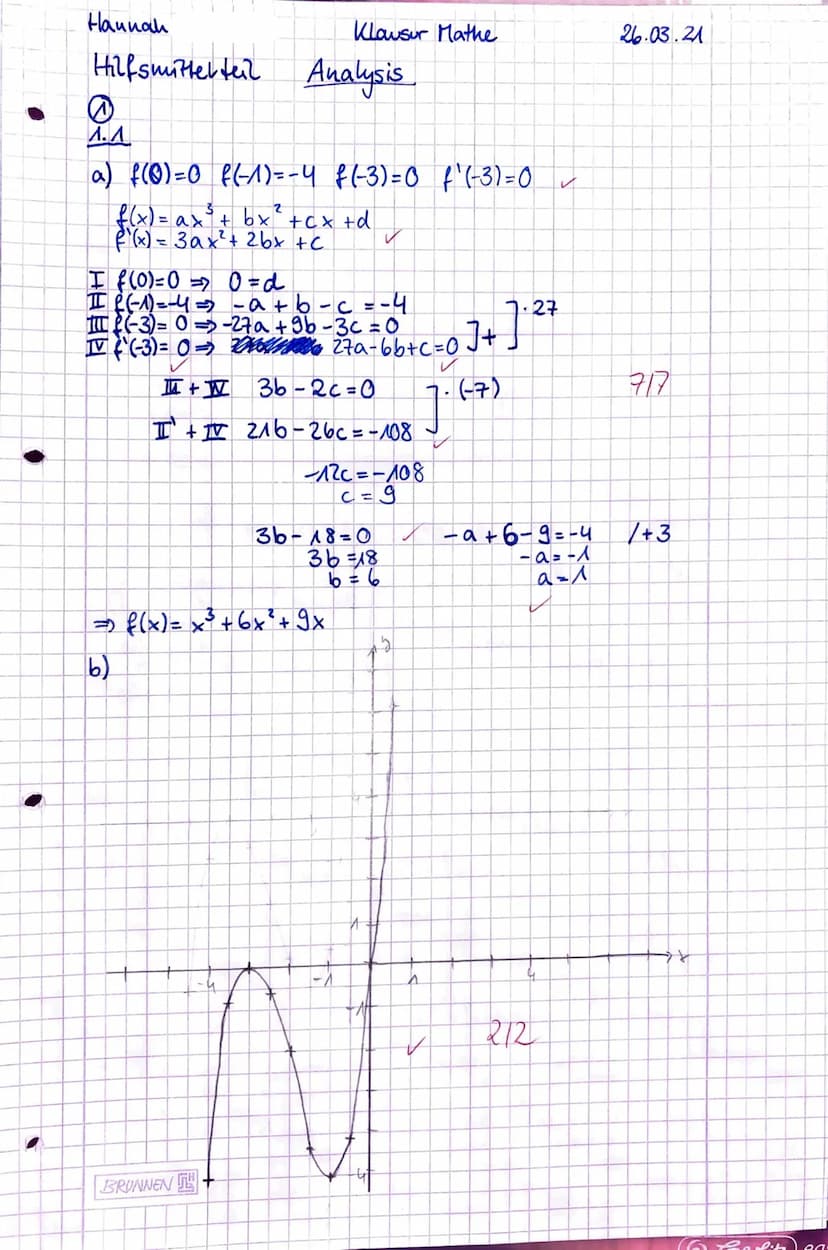 Hannah Klausur Mathe 26.03.21
Hilfsmittelteil Analysis
①
1.1
a) f(0)=0 f(-1)=-4 f(-3)=0 f'(-3)=0 ✓
f(x)= ax³ + bx² + cx + d
f'(x)= 3ax² + 2bx + c ✓
I f(0)=0 ⇒ 0=d
II f(-1)=-4 ⇒ -a + b - c = -4 ]·27
III f(-3)= 0 ⇒ -27a + 9b - 3c = 0
IV f'(-3)= 0 ⇒ 27a-6b+c=0 ]+
✓ ✓
III + IV 3b - 2c = 0 ]·(-7) 7/7
II' + IV 21b - 26c = -108
✓
-12c = -108
c = 9
3b - 18 = 0 ✓ -a + 6 - 9 = -4 /+3
3b = 18 -a = -1
b = 6 a = 1
✓
⇒ f(x)= x³ + 6x² + 9x
b)
y
1
-4 -1 1 4 x
-1
✓ 2/2
-4
BRUNNEN